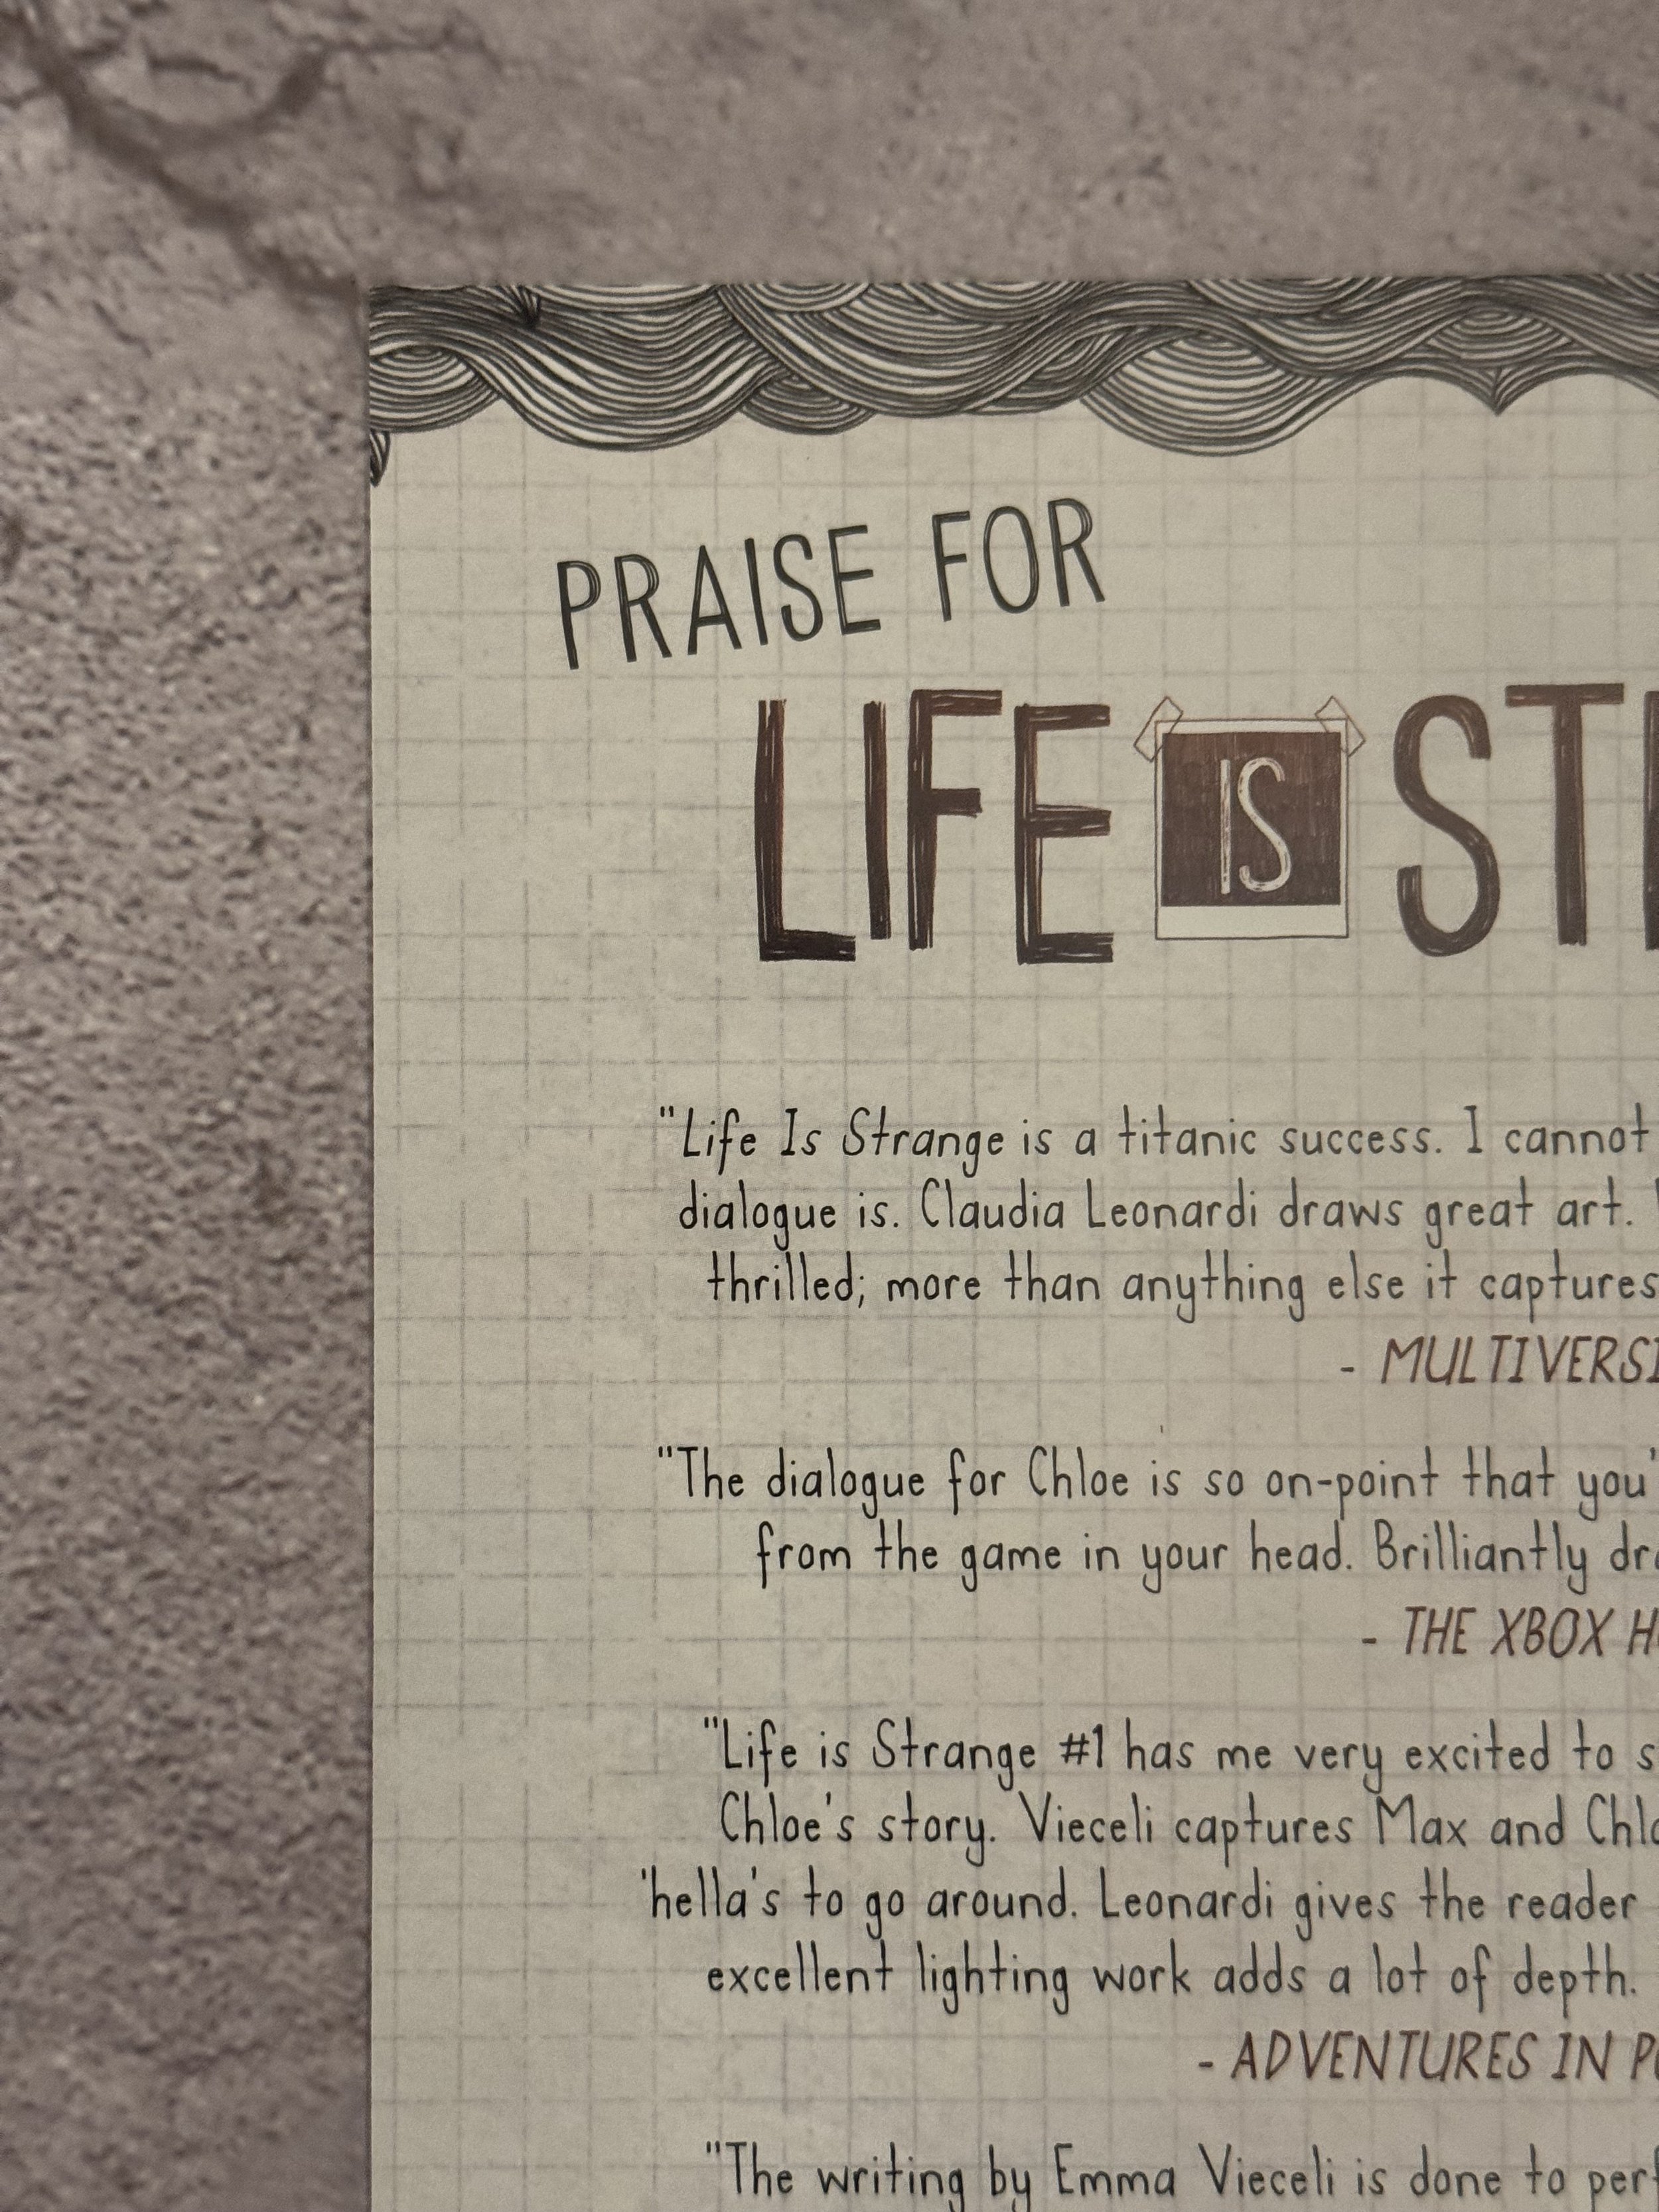 PRAISE FOR
LIFE IS
"Life Is Strange is a titanic success. I cannot
dialogue is. Claudia Leonardi draws great art.
thrilled; more than anything else it captures
-
"The dialogue for Chloe is so on-point that
from the game in your head. Brilliantly
- THE XBOX
"Life is Strange #1 has me very excited to
Chloe's story. Vieceli captures Max and
'hella's to go around. Leonardi gives the reader
excellent lighting work adds a lot of depth.
- ADVENTURES IN
"The writing by Emma Vieceli is done to